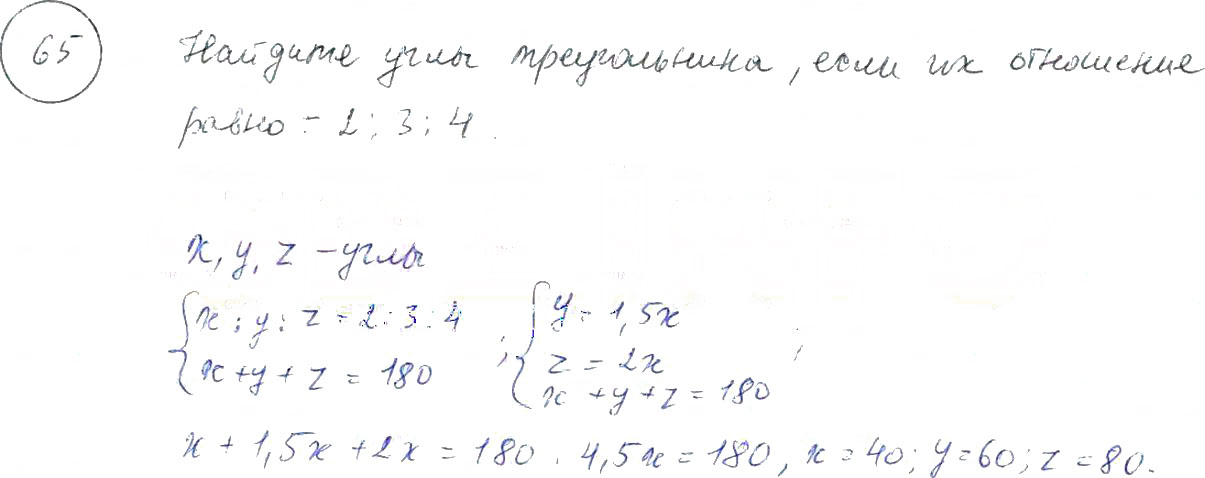 65 Найдите углы треугольника, если их отношение
равно = 2 : 3 : 4.
x, y, z - углы
{ x : y : z = 2 : 3 : 4 ; { y = 1,5x ;
x + y + z = 180 z = 2x
x + y + z = 180
x + 1,5x + 2x = 180. 4,5x = 180, x = 40; y = 60; z = 80.